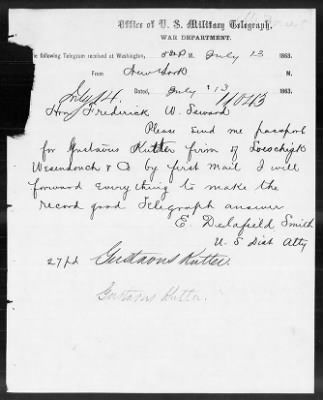 Office of U. S. Military Telegraph,
WAR DEPARTMENT.
The following Telegram received at Washington, M. July 13 1863.
From New York M.
Dated, July 13 1863.
July 14.
Hon Frederick W. Seward
Please send me passport
for Gustavus Kutter firm of
& Co by first mail I will
forward everything to make the
record good Telegraph answer
E. Delafield Smith
U. S Dist Atty
Gustavus Kutter
Gustavus Kutter.